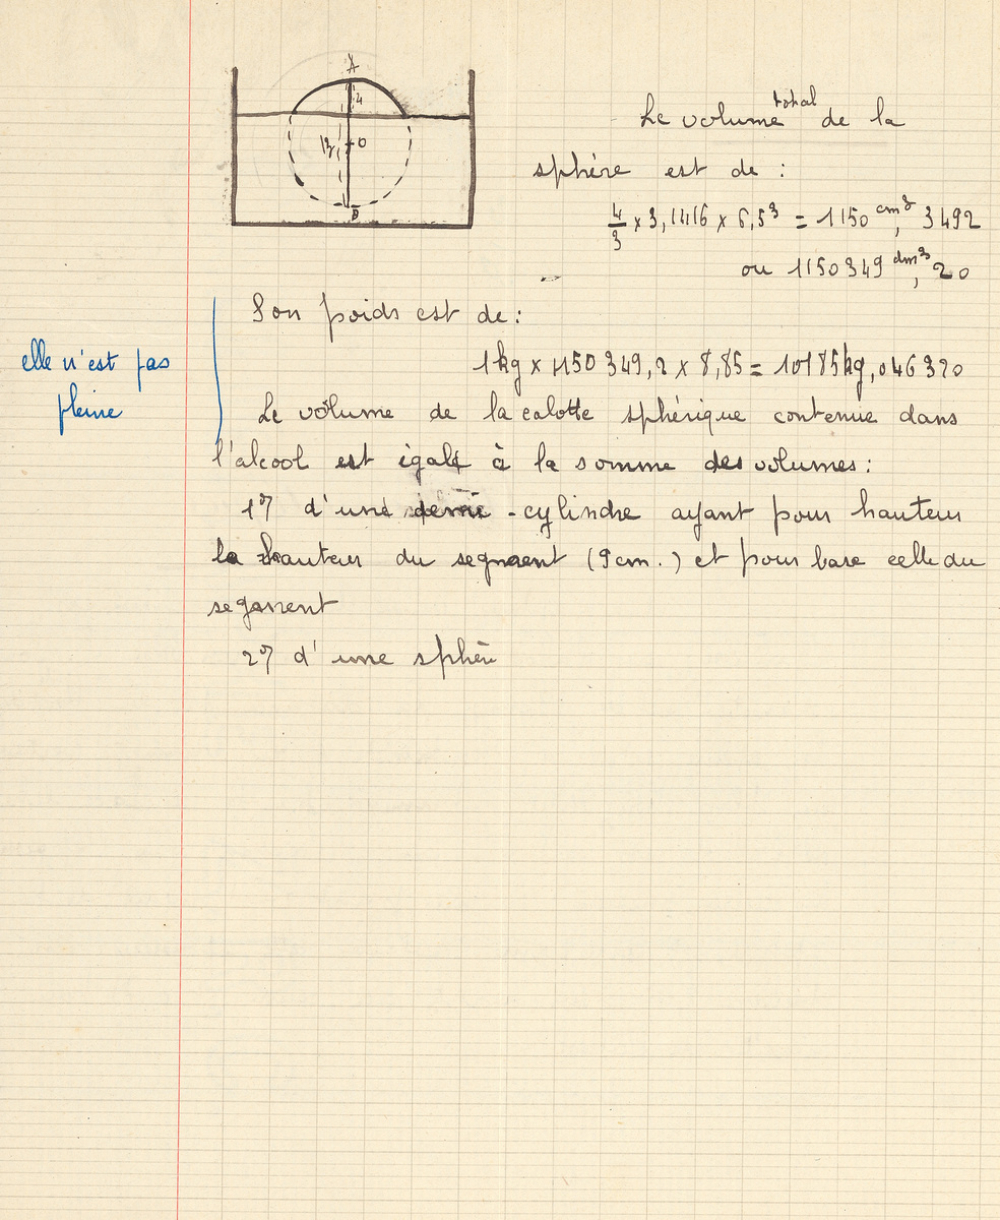 A
4
13
O
B
Le volume total de la
sphère est de :
4/3 x 3,1416 x 6,5³ = 1150 cm³, 3492
ou 1150349 dm³, 20
Son poids est de :
1kg x 1150 349,2 x 8,85 = 10185kg,046320
elle n'est pas
pleine
Le volume de la calotte sphérique contenue dans
l'alcool est égale à la somme des volumes :
1°) d'une demi-cylindre ayant pour hauteur
la hauteur du segment (9cm.) et pour base celle du
segment
2°) d'une sphère